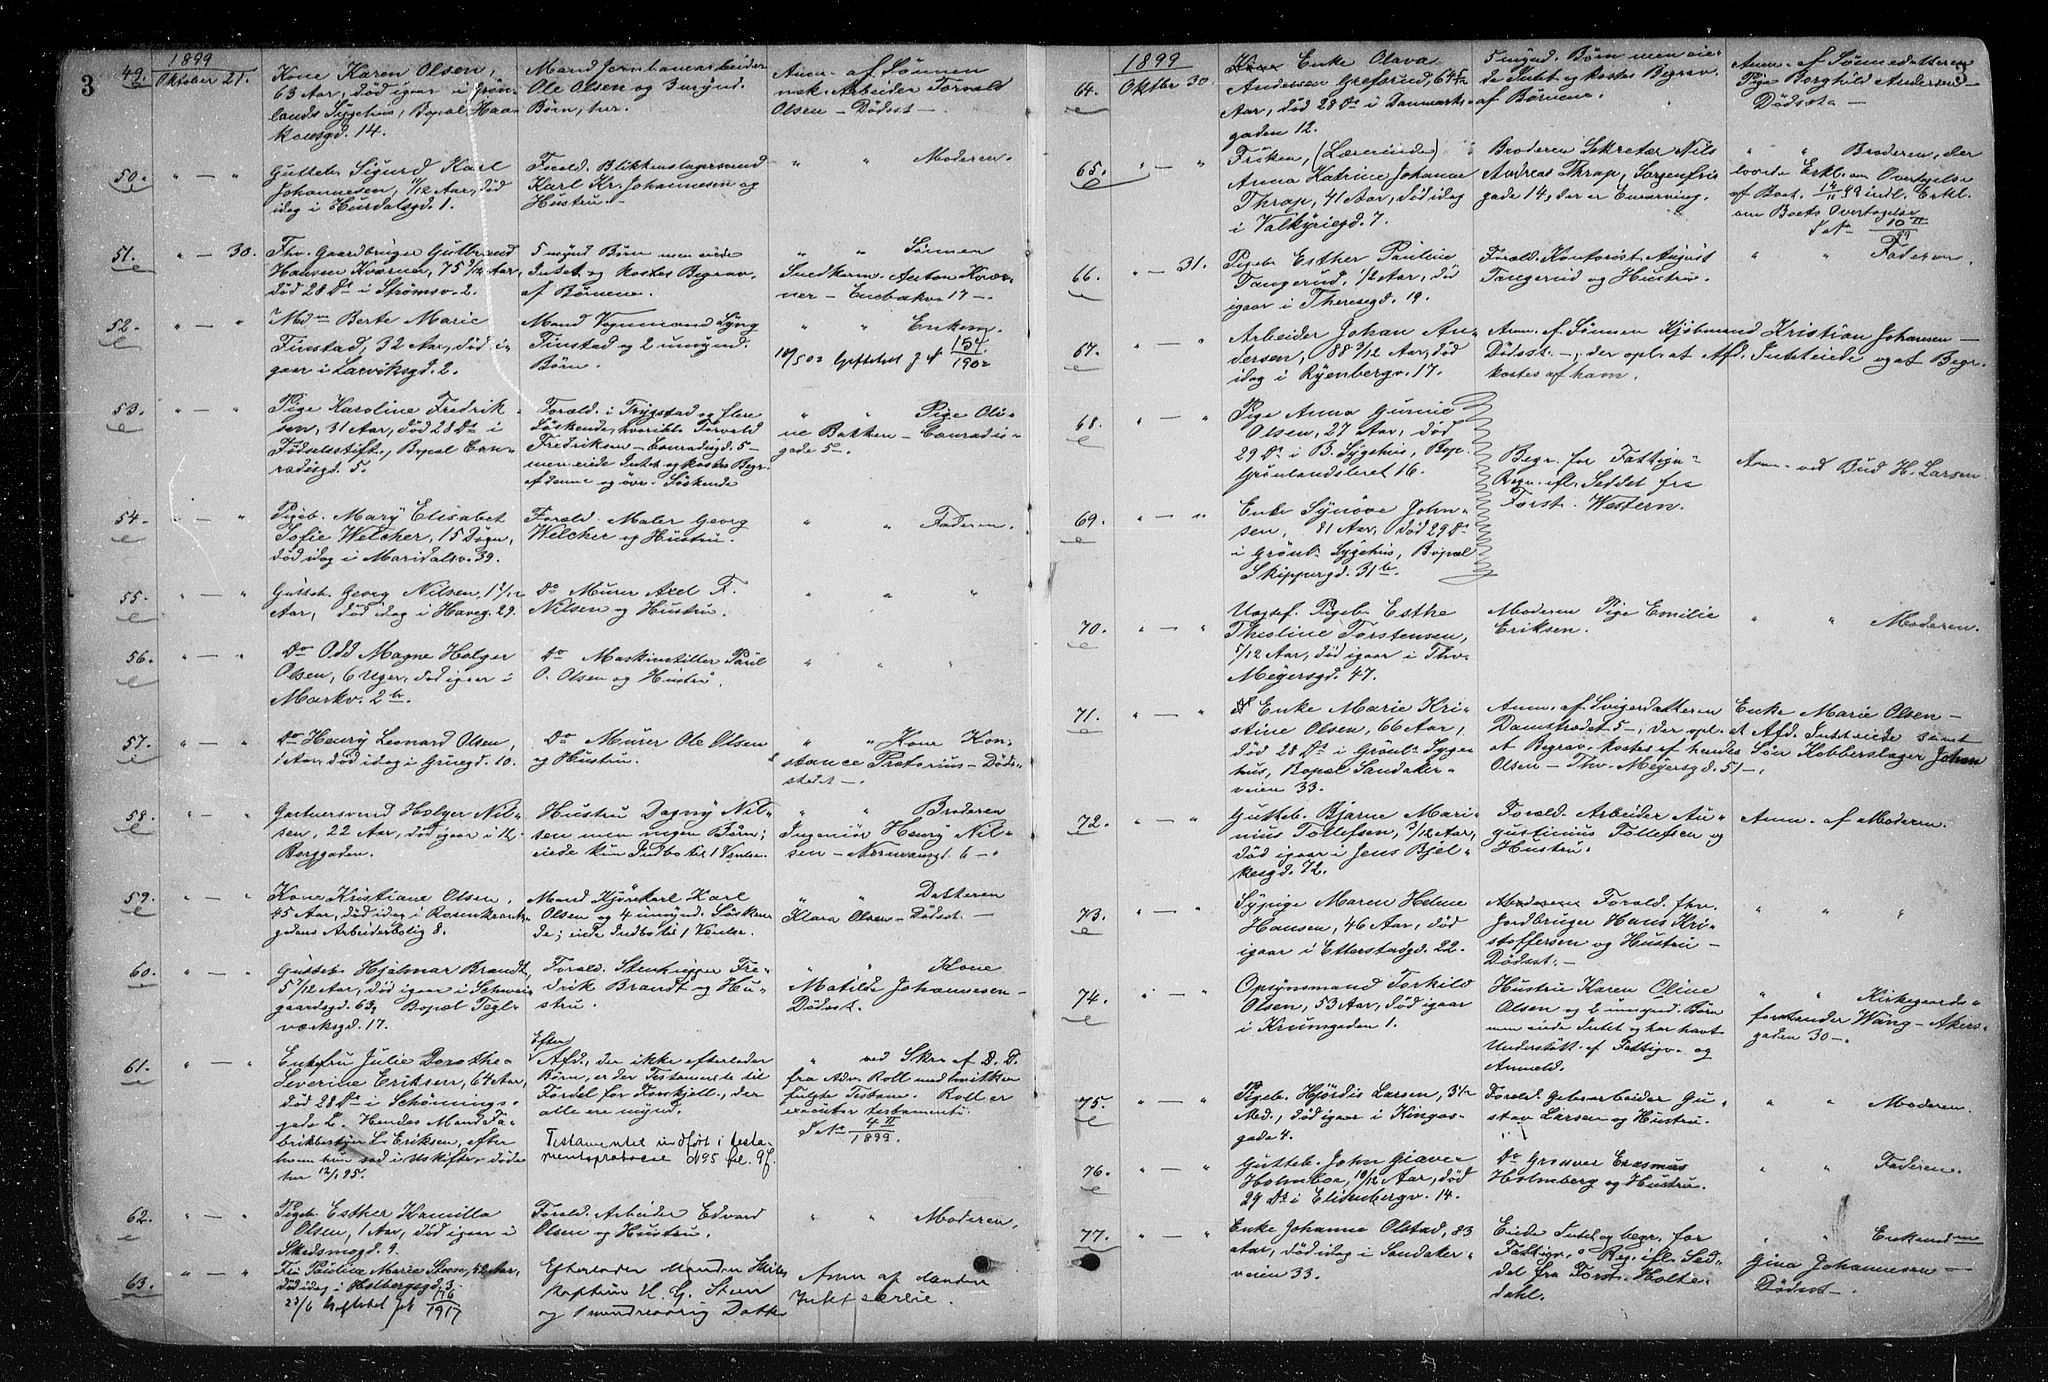 3
1899
49. Oktober 21.
Kone Karen Olsen,
63 Aar, død igaar i Grøn-
lands Sygehus, Bopæl Haa-
konsgd. 14.
Mand Jernbanearbeider
Ole Olsen og 3 mynd.
Børn, her.
Anm. af Sønnen
mek. Arbeider Torvald
Olsen - Dødsst -.
50. " — "
Gutteb. Sigurd Karl
Johannesen, 11/12 Aar, død
idag i Hurdalsgd. 1.
Foræld. Blikkenslagersvend
Karl Kr. Johannesen og
Hustru. -
" " Moderen.
51. " — 30.
Fhv. Gaardbruger Gulbrand
Hansen Kværner, 75 9/12 Aar,
død 28 Ds i Strømsv. 2.
5 mynd Børn men eiede
Intet og kostes Begrav.
af Børnene.
" " Sønnen
Snedkerm. Anton Kvær-
ner - Enebakv. 17 -.
52. " — "
Mdm Berte Marie
Finstad, 32 Aar, død i-
gaar i Larviksgd. 2.
Mand Vognmand Lyng
Finstad og 2 umynd.
Børn.
" " Enkem.
18/5 02 Geftebet J №154/1902
53. " — "
Pige Karoline Fredrik-
sen, 31 Aar, død 28 Ds i
Fødselsstift., Bopæl Con-
radisgd. 5.
Foræld. i Trygstad og flere
Søskende, hvoriblt Torvald
Fredriksen - Conradisgd. 5 -
men eiede Intet og kostes Begr.
af denne og øvr. Søskende
" " Pige Oli-
ne Bakken - Conradis-
gade 5 -.
54. " — "
Pigeb. Mary Elisabet
Sofie Welcher, 15 Døgn,
død idag i Maridalsv. 39.
Foræld. Maler Georg
Welcher og Hustru.
" " Faderen.
55. " — "
Gutteb. Georg Nilsen, 1 9/12
Aar, død idag i Haveg. 29.
Do Murer Axel F.
Nilsen og Hustru.
" " "
56. " — "
Do Odd Magne Holger
Olsen, 6 Uger, død igaar i
Markv. 2 b.
Do Maskinstiller Paul
O. Olsen og Hustru.
" " "
57. " — "
Do Henry Leonard Olsen,
1 Aar, død idag i Grüegd. 10.
Do Murer Ole Olsen
og Hustru.
" " Kone Kon-
stance Prætorius - Døds-
stedet -.
58. " — "
Gartnersvend Holger Nil-
sen, 22 Aar, død igaar i L.
Borggaden.
Hustru Dagny Nil-
sen men ingen Børn;
eiede kun Indbo til 1 Værelse.
" " Broderen
Ingeniør Henry Nil-
sen - Normannsgd. 6 -.
59. " — "
Kone Kristiane Olsen,
45 Aar, død idag i Rosenkrantz-
gadens Arbeiderbolig 8.
Mand Kjørekarl Karl
Olsen og 4 umynd. Søsken-
de; eiede Indbo til 1 Værelse.
" " Datteren
Klara Olsen - Dødsst. -
60. " — "
Gutteb. Hjalmar Brandt,
5 1/12 Aar, død igaar i Schweig
gaardsgd. 63, Bopæl Tegl-
værksgd. 17.
Foræld. Stenhugger Fre-
drik Brandt og Hu-
stru.
" " Kone
Matilde Johannesen -
Dødsst.
61. " — "
Enkefru Julie Dorothe
Severine Eriksen, 64 Aar,
død 28 Ds i Schønnings-
gade 2. Hendes Mand Fa-
brikbestyrer L. Eriksen, efter
hvem hun sad i Uskifte, døde
her 12/1 95.
Efter
Afd., der ikke efterlader
Børn, er der Testamente til
Fordel for Forskjell., der
alle ere mynd.
Testamentet indført i testa-
mentsprotocol №5 fol. 98.
" ved Skr. af D. D.
fra Adv. Roll med hvilken
fulgte Testam. Roll er
executor testamenti.
S №4 II/1899.
62. " — "
Pigeb. Esther Kamilla
Olsen, 1 Aar, død igaar i
Skedsmogd. 9.
Foræld. Arbeider Edvard
Olsen og Hustru.
" " Moderen.
63. " — "
Fru Paulina Marie Steen, 52 Aar,
død idag i Holbergsgd. 3.
23/6 Geftebet J № 176/1917
Efterlader Manden Skibs
kaptein H. G. Steen
og 1 mindreaarig Datter
Anm af manden
Intet særeie.
3
1899
64. Oktbr 30.
Enke Olava
Andersen Grefsrud, 64 5/12
Aar, død 28 Ds i Danmarks-
gaden 12.
5 mynd. Børn men eie-
de Intet og kostes Begrav.
af Børnene.
Anm. af Sønnedatteren
Pige Borghild Andersen -
Dødsst. -
65. " — "
Frøken, (Lærerinde)
Anna Katrine Johanne
Thrap, 41 Aar, død idag
i Valkyriegd. 7.
Broderen Sekretær Nils
Andreas Thrap, Sorgenfri-
gade 14, der er Enearving.
" " Broderen, der
lovede Erkl. om Overtagelse
af Boet. 14/11 99 indl. Erkl.
om Boets Overtagelse
S № 10 II/99
66. " — 31.
Pigeb. Esther Pauline
Tangerud, 1/2 Aar, død
igaar i Theresegd. 19.
Foræld. Kontorist August
Tangerud og Hustru.
" " Faderen.
67. " — "
Arbeider Johan An-
dersen, 88 9/12 Aar, død
idag i Ryenbergv. 17.
Anm. af Sønnen Kjøbmand Kristian Johansen -
Dødsst. -, der opl. at Afd. Intet eiede og at Begr.
kostes af ham.
68. " — "
Pige Anna Gurine
Olsen, 27 Aar, død
29 Ds i B. Sygehus, Bop.
Grønlandsleret 16.
Begr. for Fattigv-
Regn. efl. Seddel fra
Forst. Western.
Anm. ved Bud H. Larsen
69. " — "
Enke Synøve John-
sen, 81 Aar, død 29 Ds
i Grønl. Sygehus, Bopæl
Skippergd. 31 b.
70. " — "
Uægtef. Pigeb. Esther
Theoline Torstensen,
5/12 Aar, død igaar i Thv.
Meyersgd. 47.
Moderen Pige Emilie
Eriksen.
" " Moderen.
71. " — "
Enke Marie Kri-
stine Olsen, 66 Aar,
død 28 Ds i Grønl. Syge-
hus, Bopæl Sandaker-
veien 33.
Anm. af Svigerdatteren Enke Marie Olsen -
Damstrædet 5 -, der opl. at Afd. Intet eiede samt
at Begrav. kostes af hendes Søn Kobberslager Johan
Olsen - Thv. Meyersgd. 51 -.
72. " — "
Gutteb. Bjarne Mari-
nius Tollefsen, 3/12 Aar,
død igaar i Jens Bjel-
kesgd. 72.
Foræld. Arbeider Au-
gustinius Tollefsen og
Hustru.
Anm. af Moderen.
73. " — "
Sypige Maren Helene
Hansen, 46 Aar, død
igaar i Etterstadgd. 22.
Foræld. fhv.
Jordbruger Hans Kri-
stoffersen og Hustru -
Dødsst. -
" " "
74. " — "
Opsynsmand Torkild
Olsen, 53 Aar, død igaar
i Krumgaden 1.
Hustru Karen Oline
Olsen og 6 umynd. Børn
men eiede Intet og har havt
Understøtt. af Fattigv. og
Anmeld.
" " Kirkegaards-
forstander Wang - Akers-
gaden 30 -.
75. " — "
Pigeb. Hjørdis Larsen, 3 1/2
Md., død igaar i Kingos-
gade 4.
Foræld. Gasarbeider Gu-
stav Larsen og Hustru.
" " Moderen.
76. " — "
Gutteb. John Glaver
Holmboe, 10/12 Aar, død
29 Ds i Elisenbergv. 14.
Do Grosser Erasmus
Holmberg og Hustru.
" " Faderen.
77. " — "
Enke Johanne Olstad, 83
Aar, død idag i Sandaker-
veien 33.
Eiede Intet og begr. for
Fattigv.s Reg. ifl. Sed-
del fra Forst. Holte-
dahl.
" " Enkemdm
Gina Johannesen -
Dødsst -.